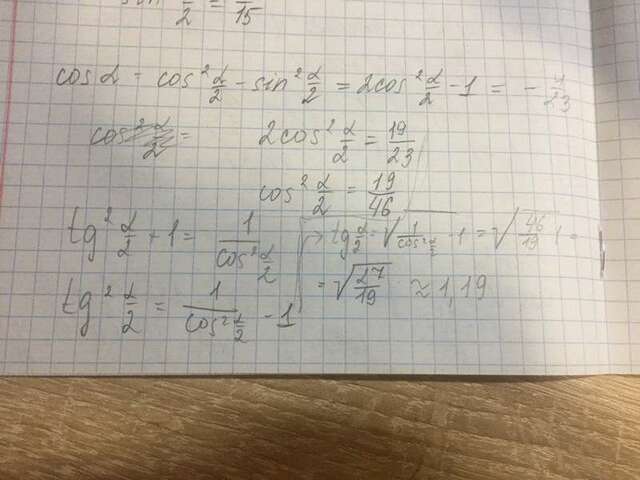 α/2 = /15
cos α = cos² α/2 - sin² α/2 = 2cos² α/2 - 1 = - /23
cos² α/2 = 2cos² α/2 = 19/23
cos² α/2 = 19/46
tg² α/2 + 1 = 1/cos² α/2 → tg α/2 = √(1/cos² α/2 - 1) = √(46/19 - 1) =
tg² α/2 = 1/cos² α/2 - 1 = √(27/19) ≈ 1,19